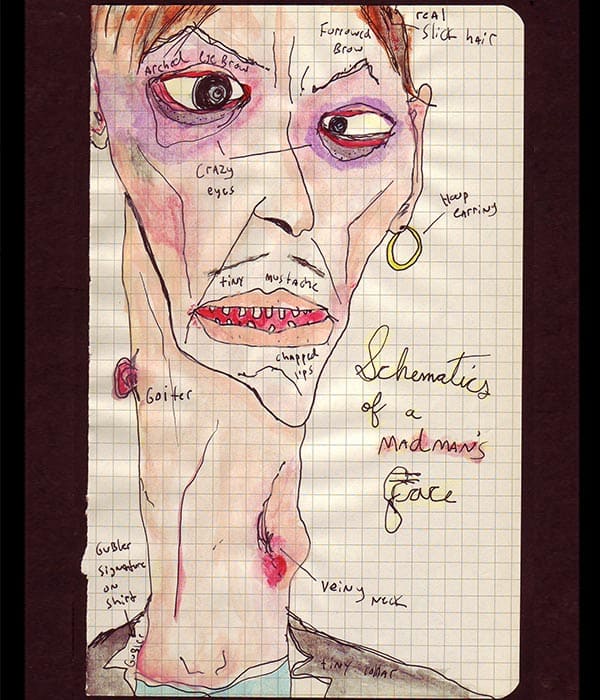 real
slick hair
Furrowed
Brow
Arched Eye Brow
Crazy
eyes
Hoop
Earring
tiny mustache
chapped
lips
Goiter
Schematics
of a
MADMAN'S
Face
Gubler
Signature
on
Shirt
Veiny Neck
Gubler
tiny collar